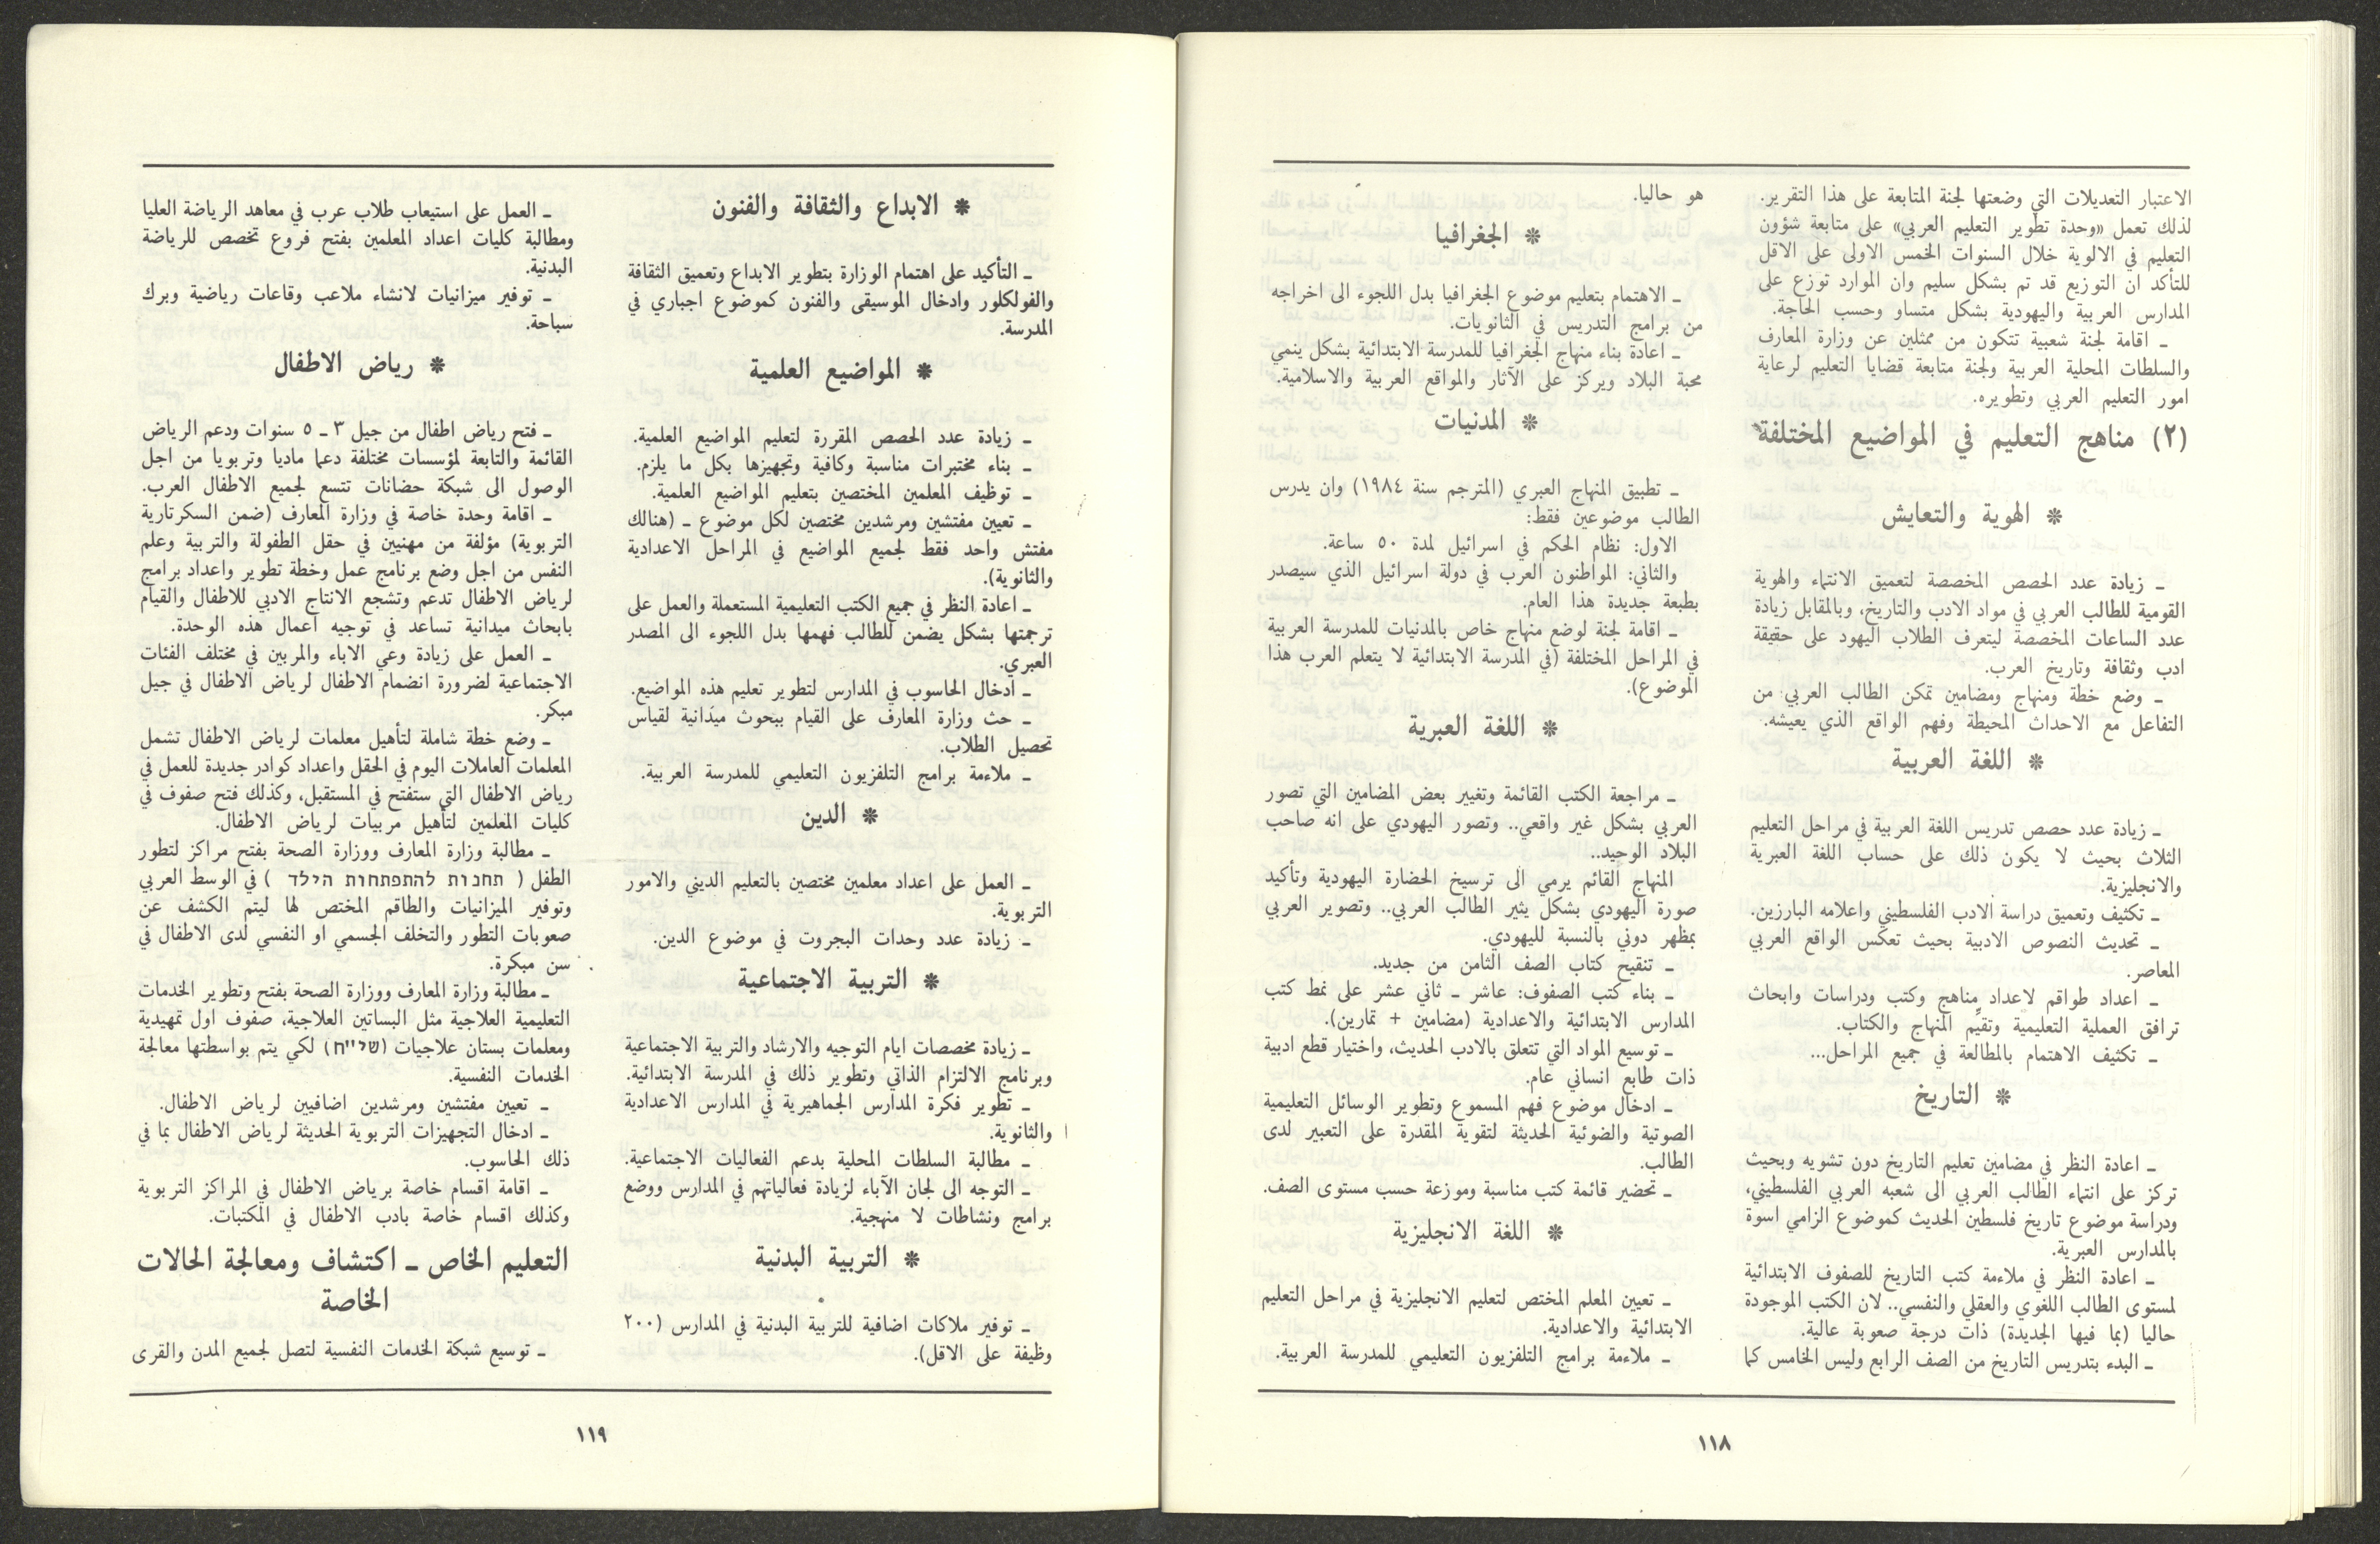 الاعتبار التعديلات التي وضعتها لجنة المتابعة على هذا التقرير.
لذلك تعمل «وحدة تطوير التعليم العربي» على متابعة شؤون
التعليم في الالوية خلال السنوات الخمس الاولى على الاقل
للتأكد ان التوزيع قد تم بشكل سليم وان الموارد توزع على
المدارس العربية واليهودية بشكل متساو وحسب الحاجة.
ـ اقامة لجنة شعبية تتكون من ممثلين عن وزارة المعارف
والسلطات المحلية العربية ولجنة متابعة قضايا التعليم لرعاية
امور التعليم العربي وتطويره.
(٢) مناهج التعليم في المواضيع المختلفة
* الهوية والتعايش
ـ زيادة عدد الحصص المخصصة لتعميق الانتماء والهوية
القومية للطالب العربي في مواد الادب والتاريخ، وبالمقابل زيادة
عدد الساعات المخصصة ليتعرف الطلاب اليهود على حقيقة
ادب وثقافة وتاريخ العرب.
ـ وضع خطة ومنهاج ومضامين تمكن الطالب العربي من
التفاعل مع الاحداث المحيطة وفهم الواقع الذي يعيشه.
* اللغة العربية
ـ زيادة عدد حصص تدريس اللغة العربية في مراحل التعليم
الثلاث بحيث لا يكون ذلك على حساب اللغة العبرية
والانجليزية.
ـ تكثيف وتعميق دراسة الادب الفلسطيني واعلامه البارزين.
ـ تحديث النصوص الادبية بحيث تعكس الواقع العربي
المعاصر.
ـ اعداد طواقم لاعداد مناهج وكتب ودراسات وابحاث
ترافق العملية التعليمية وتقيّم المنهاج والكتاب.
ـ تكثيف الاهتمام بالمطالعة في جميع المراحل...
* التاريخ
ـ اعادة النظر في مضامين تعليم التاريخ دون تشويه وبحيث
تركز على انتماء الطالب العربي الى شعبه العربي الفلسطيني،
ودراسة موضوع تاريخ فلسطين الحديث كموضوع الزامي اسوة
بالمدارس العبرية.
ـ اعادة النظر في ملاءمة كتب التاريخ للصفوف الابتدائية
لمستوى الطالب اللغوي والعقلي والنفسي.. لان الكتب الموجودة
حاليا (بما فيها الجديدة) ذات درجة صعوبة عالية.
ـ البدء بتدريس التاريخ من الصف الرابع وليس الخامس كما
هو حاليا.
* الجغرافيا
ـ الاهتمام بتعليم موضوع الجغرافيا بدل اللجوء الى اخراجه
من برامج التدريس في الثانويات.
ـ اعادة بناء منهاج الجغرافيا للمدرسة الابتدائية بشكل ينمي
محبة البلاد ويركز على الآثار والمواقع العربية والاسلامية.
* المدنيات
ـ تطبيق المنهاج العبري (المترجم سنة ١٩٨٤) وان يدرس
الطالب موضوعين فقط:
الاول: نظام الحكم في اسرائيل لمدة ٥٠ ساعة.
والثاني: المواطنون العرب في دولة اسرائيل الذي سيصدر
بطبعة جديدة هذا العام.
ـ اقامة لجنة لوضع منهاج خاص بالمدنيات للمدرسة العربية
في المراحل المختلفة (في المدرسة الابتدائية لا يتعلم العرب هذا
الموضوع).
* اللغة العبرية
ـ مراجعة الكتب القائمة وتغيير بعض المضامين التي تصور
العربي بشكل غير واقعي.. وتصور اليهودي على انه صاحب
البلاد الوحيد..
المنهاج القائم يرمي الى ترسيخ الحضارة اليهودية وتأكيد
صورة اليهودي بشكل يثير الطالب العربي.. وتصوير العربي
بمظهر دوني بالنسبة لليهودي.
ـ تنقيح كتاب الصف الثامن من جديد.
ـ بناء كتب الصفوف: عاشر ـ ثاني عشر على نمط كتب
المدارس الابتدائية والاعدادية (مضامين + تمارين).
ـ توسيع المواد التي تتعلق بالادب الحديث، واختيار قطع ادبية
ذات طابع انساني عام.
ـ ادخال موضوع فهم المسموع وتطوير الوسائل التعليمية
الصوتية والضوئية الحديثة لتقوية المقدرة على التعبير لدى
الطالب.
ـ تحضير قائمة كتب مناسبة وموزعة حسب مستوى الصف.
* اللغة الانجليزية
ـ تعيين المعلم المختص لتعليم الانجليزية في مراحل التعليم
الابتدائية والاعدادية.
ـ ملاءمة برامج التلفزيون التعليمي للمدرسة العربية.
١١٨
* الابداع والثقافة والفنون
ـ التأكيد على اهتمام الوزارة بتطوير الابداع وتعميق الثقافة
والفولكلور وادخال الموسيقى والفنون كموضوع اجباري في
المدرسة.
* المواضيع العلمية
ـ زيادة عدد الحصص المقررة لتعليم المواضيع العلمية.
ـ بناء مختبرات مناسبة وكافية وتجهيزها بكل ما يلزم.
ـ توظيف المعلمين المختصين بتعليم المواضيع العلمية.
ـ تعيين مفتشين ومرشدين مختصين لكل موضوع ـ (هنالك
مفتش واحد فقط لجميع المواضيع في المراحل الاعدادية
والثانوية).
ـ اعادة النظر في جميع الكتب التعليمية المستعملة والعمل على
ترجمتها بشكل يضمن للطالب فهمها بدل اللجوء الى المصدر
العبري.
ـ ادخال الحاسوب في المدارس لتطوير تعليم هذه المواضيع.
ـ حث وزارة المعارف على القيام ببحوث ميدانية لقياس
تحصيل الطلاب.
ـ ملاءمة برامج التلفزيون التعليمي للمدرسة العربية.
* الدين
ـ العمل على اعداد معلمين مختصين بالتعليم الديني والامور
التربوية.
ـ زيادة عدد وحدات البجروت في موضوع الدين.
* التربية الاجتماعية
ـ زيادة مخصصات ايام التوجيه والارشاد والتربية الاجتماعية
وبرنامج الالتزام الذاتي وتطوير ذلك في المدرسة الابتدائية.
ـ تطوير فكرة المدارس الجماهيرية في المدارس الاعدادية
والثانوية.
ـ مطالبة السلطات المحلية بدعم الفعاليات الاجتماعية.
ـ التوجه الى لجان الآباء لزيادة فعالياتهم في المدارس ووضع
برامج ونشاطات لا منهجية.
* التربية البدنية
ـ توفير ملاكات اضافية للتربية البدنية في المدارس (٢٠٠
وظيفة على الاقل).
ـ العمل على استيعاب طلاب عرب في معاهد الرياضة العليا
ومطالبة كليات اعداد المعلمين بفتح فروع تخصص للرياضة
البدنية.
ـ توفير ميزانيات لانشاء ملاعب وقاعات رياضية وبرك
سباحة.
* رياض الاطفال
ـ فتح رياض اطفال من جيل ٣ ـ ٥ سنوات ودعم الرياض
القائمة والتابعة لمؤسسات مختلفة دعما ماديا وتربويا من اجل
الوصول الى شبكة حضانات تتسع لجميع الاطفال العرب.
ـ اقامة وحدة خاصة في وزارة المعارف (ضمن السكرتارية
التربوية) مؤلفة من مهنيين في حقل الطفولة والتربية وعلم
النفس من اجل وضع برنامج عمل وخطة تطوير واعداد برامج
لرياض الاطفال تدعم وتشجع الانتاج الادبي للاطفال والقيام
بابحاث ميدانية تساعد في توجيه اعمال هذه الوحدة.
ـ العمل على زيادة وعي الاباء والمربين في مختلف الفئات
الاجتماعية لضرورة انضمام الاطفال لرياض الاطفال في جيل
مبكر.
ـ وضع خطة شاملة لتأهيل معلمات لرياض الاطفال تشمل
المعلمات العاملات اليوم في الحقل واعداد كوادر جديدة للعمل في
رياض الاطفال التي ستفتح في المستقبل، وكذلك فتح صفوف في
كليات المعلمين لتأهيل مربيات لرياض الاطفال.
ـ مطالبة وزارة المعارف ووزارة الصحة بفتح مراكز لتطور
الطفل ( תחנות להתפתחות הילד ) في الوسط العربي
وتوفير الميزانيات والطاقم المختص لها ليتم الكشف عن
صعوبات التطور والتخلف الجسمي او النفسي لدى الاطفال في
سن مبكرة.
ـ مطالبة وزارة المعارف ووزارة الصحة بفتح وتطوير الخدمات
التعليمية العلاجية مثل البساتين العلاجية، صفوف اول تمهيدية
ومعلمات بستان علاجيات (שי״ח) لكي يتم بواسطتها معالجة
الخدمات النفسية.
ـ تعيين مفتشين ومرشدين اضافيين لرياض الاطفال.
ـ ادخال التجهيزات التربوية الحديثة لرياض الاطفال بما في
ذلك الحاسوب.
ـ اقامة اقسام خاصة برياض الاطفال في المراكز التربوية
وكذلك اقسام خاصة بادب الاطفال في المكتبات.
التعليم الخاص ـ اكتشاف ومعالجة الحالات
الخاصة
ـ توسيع شبكة الخدمات النفسية لتصل لجميع المدن والقرى
١١٩